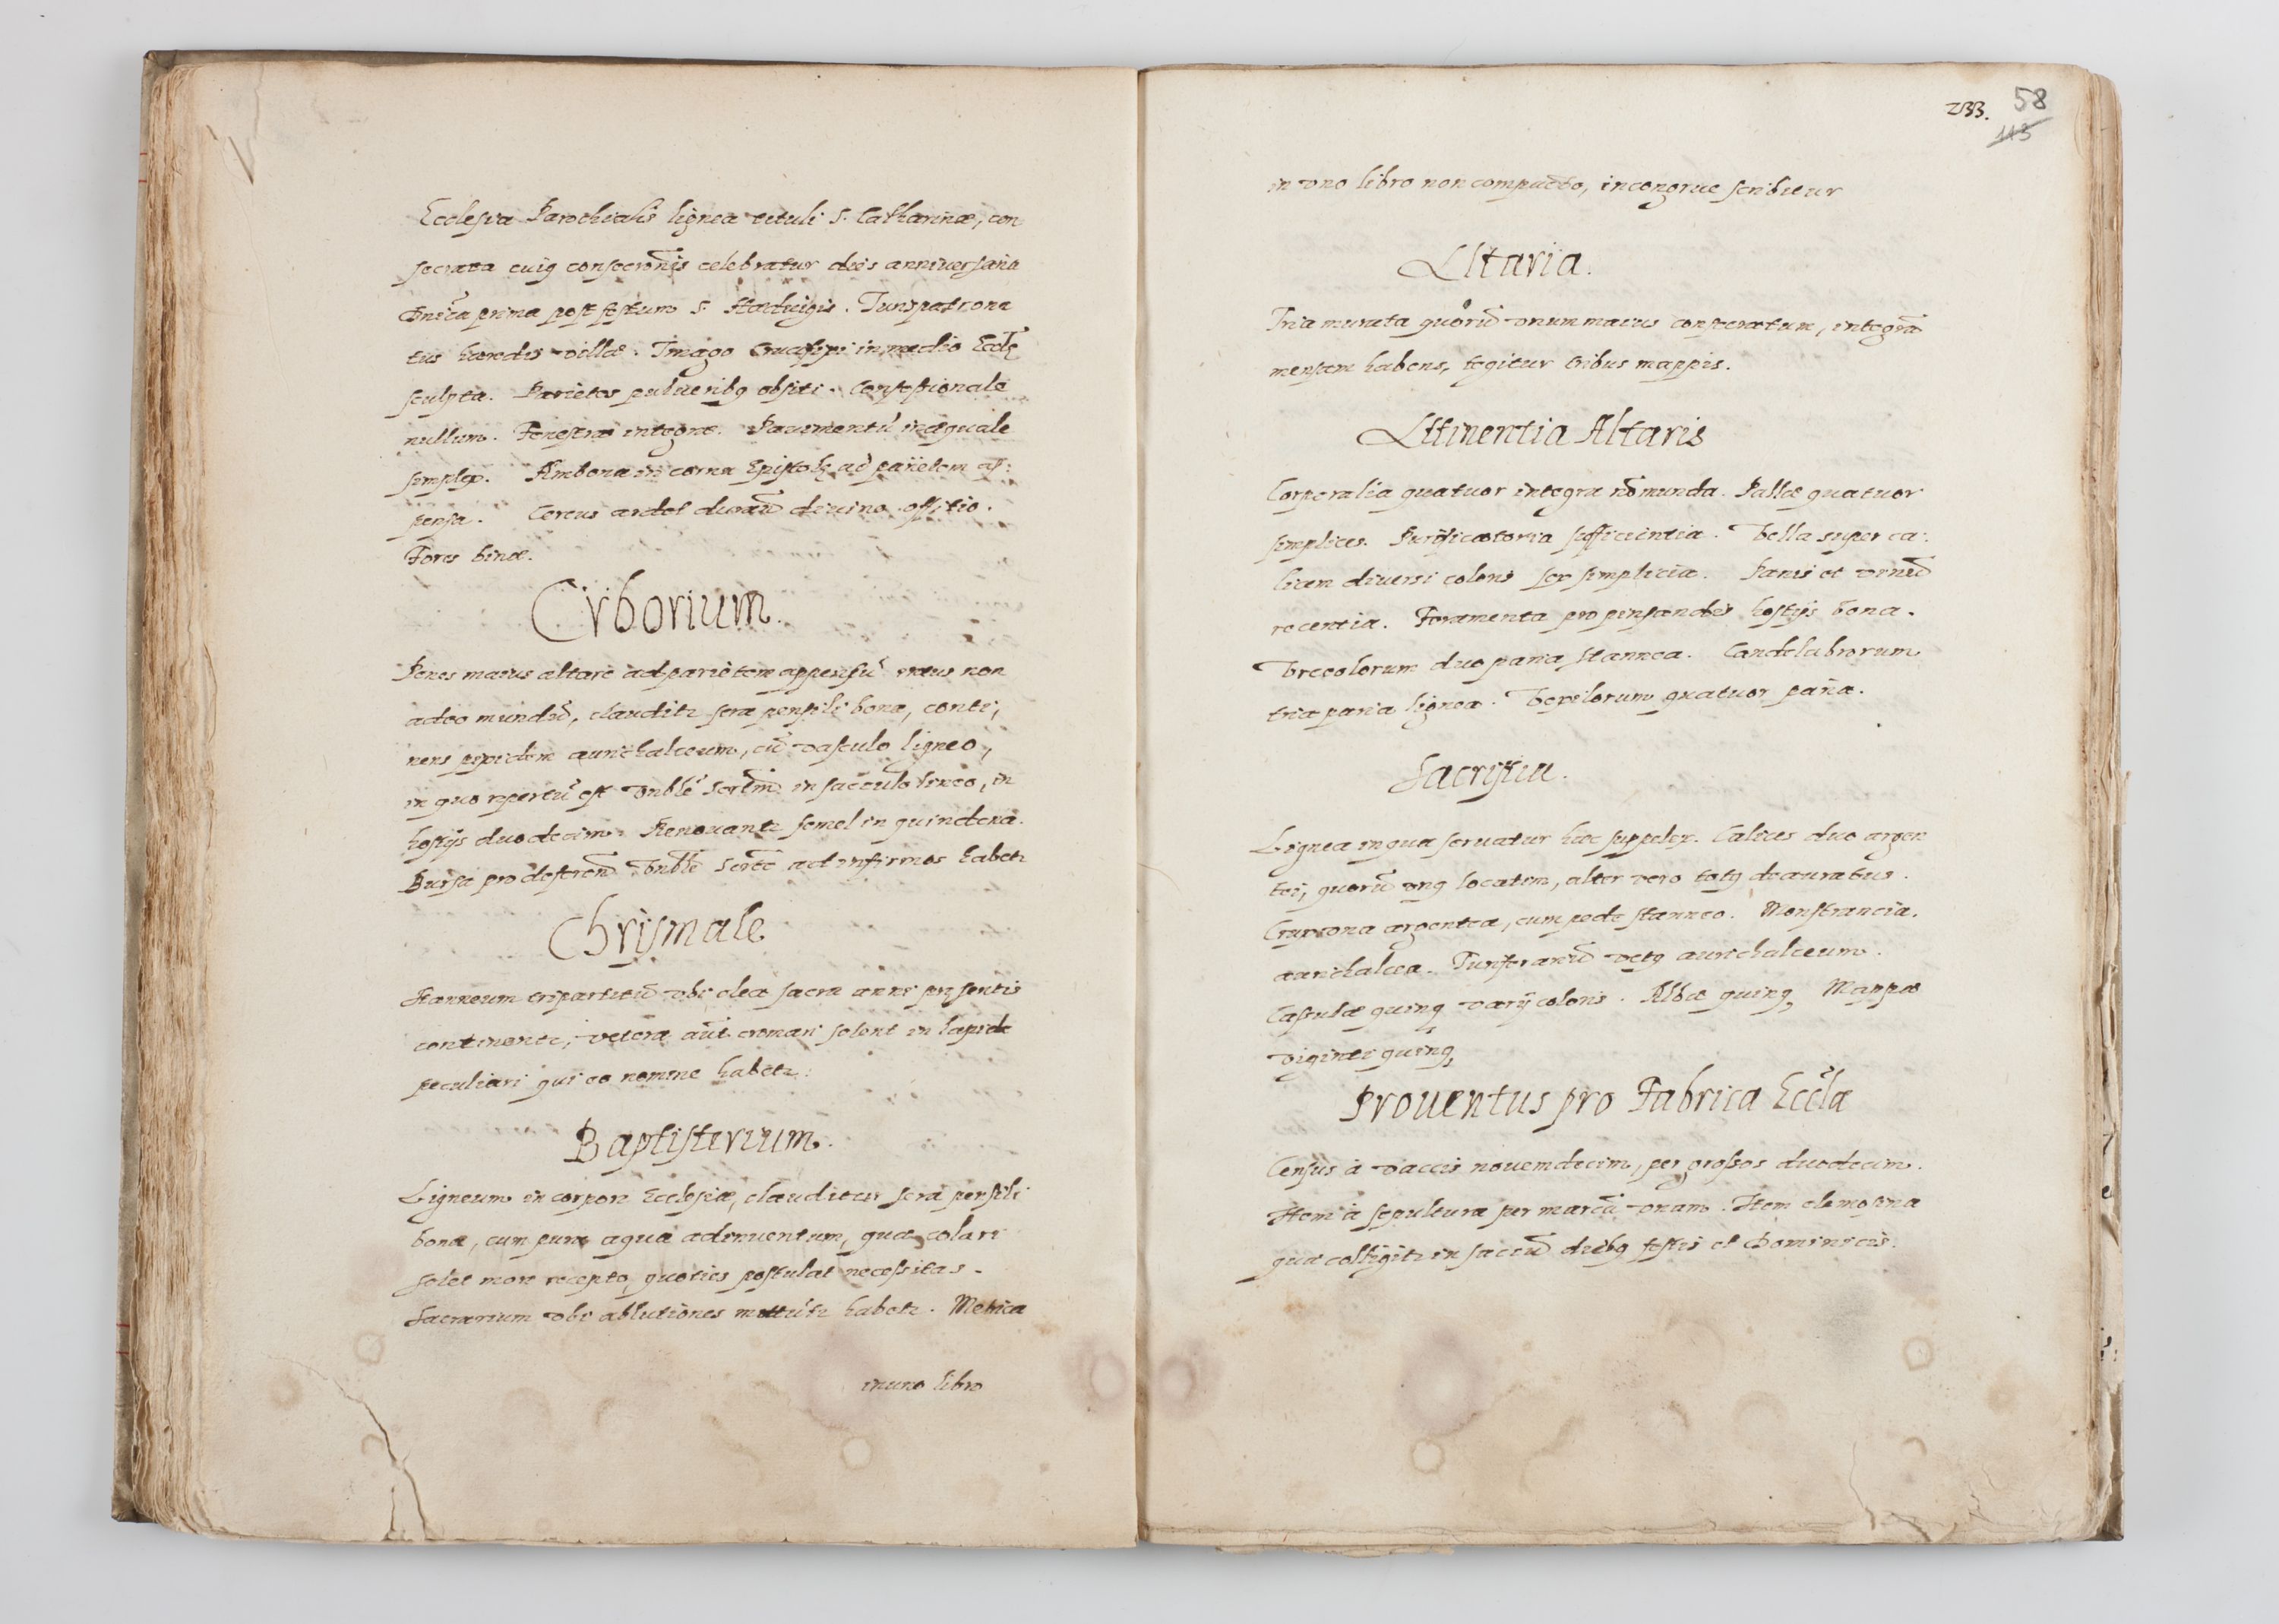 Ecclesia Parochialis lignea tituli S. Catharinæ, con
secrata cuiq consecrõnis celebratur dies anniversaria
Dnĩca prima post festum S. Hæduigis. Jurispatrona
tus hæredis villæ. Imago Crucifixi in medio Eccłę
sculpta. Parietes pulueribq obsiti. Confessionale
nullum. Fenestræ integræ. Pauimentũ inæquale
simplex. Ambona in cornu Epistolę ad parietem ap:
pensa. Cereus ardet durãte diuino offitio.
Fores binæ.
Cyborium.
Penes maius altare ad parietem appensũ intus non
adeo mundũ, clauditr sera pensili bona, conti,
nens pixidem aurichalceum, cũ vasculo ligneo,
in quo repertũ est Vnblẽ Scrãm in sacculo lineo, in
hostijs duodecim. Renouantr semel in quindena.
Bursa pro deferend Vnblĩ Scrãto ad infirmos habetr
Chrismale
Stanneum tripartitũ vbi olea sacra anni pręsentis
continentr, vetera aũt cremari solent in lapide
peculiari qui eo nomine habetr.
Baptisterium.
Ligneum in corpore Ecclesiæ, clauditur sera pensili
bona, cum pura aqua adinuentum, quæ colari
solet more recepto, quoties postulat necessitas.
Sacrarium vbi ablutiones mittũtr habetr. Metrica
in uno libro
233. 58
115
in vno libro non compacto, incongrue scribitur
Altaria.
Tria murata quorũ vnum maius consecratum, integrã
mensam habens, tegitur tribus mappis.
Attinentia Altaris
Corporalia quatuor integra nõ munda. Pallæ quatuor
simplices. Purificatoria sufficientia. Vella super ca:
licem diuersi coloris sex simplicia. Panis et vinũ
recentia. Foramenta pro pensandis hostijs bona.
Vrceolorum duo paria stannea. Candelabrorum
tria paria lignea. Vexilorum quatuor paria.
Sacristia.
Lignea in qua seruatur hæc suppelex. Calices duo argen
tei, quorũ vnq locatim, alter vero totq deauratus.
Crux vna argentea, cum pede stanneo. Monstrancia.
aurichalcea. Turiferariũ vetq aurichalceum.
Casulæ quinq varij coloris. Albæ quinq, Mappæ
viginti quinq
Prouentus pro Fabrica Eccła
Census à vaccis nouemdecim, per grossos duodecim.
Item à sepultura per marcã vnam. Item elemosina
quæ colligitr in saccũ diebq festis et Dominicis.